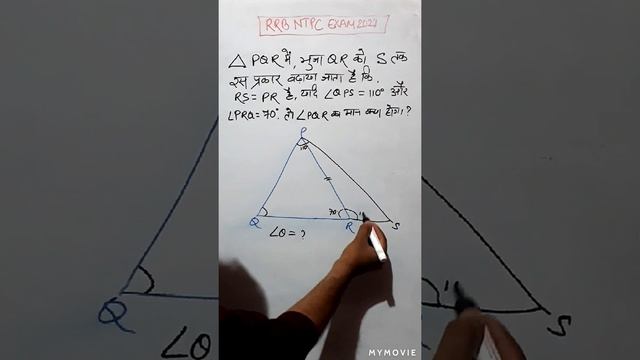 RRB NTPC EXAM 2021
△ PQR में, भुजा QR को S तक
इस प्रकार बढ़ाया जाता है कि.
RS = PR है, यदि ∠QPS = 110° और
∠PRQ = 70° तो ∠PQR का मान क्या होगा?
P
70
Q
R
S
∠Q = ?
Q
∠Q
S
MYMOVIE